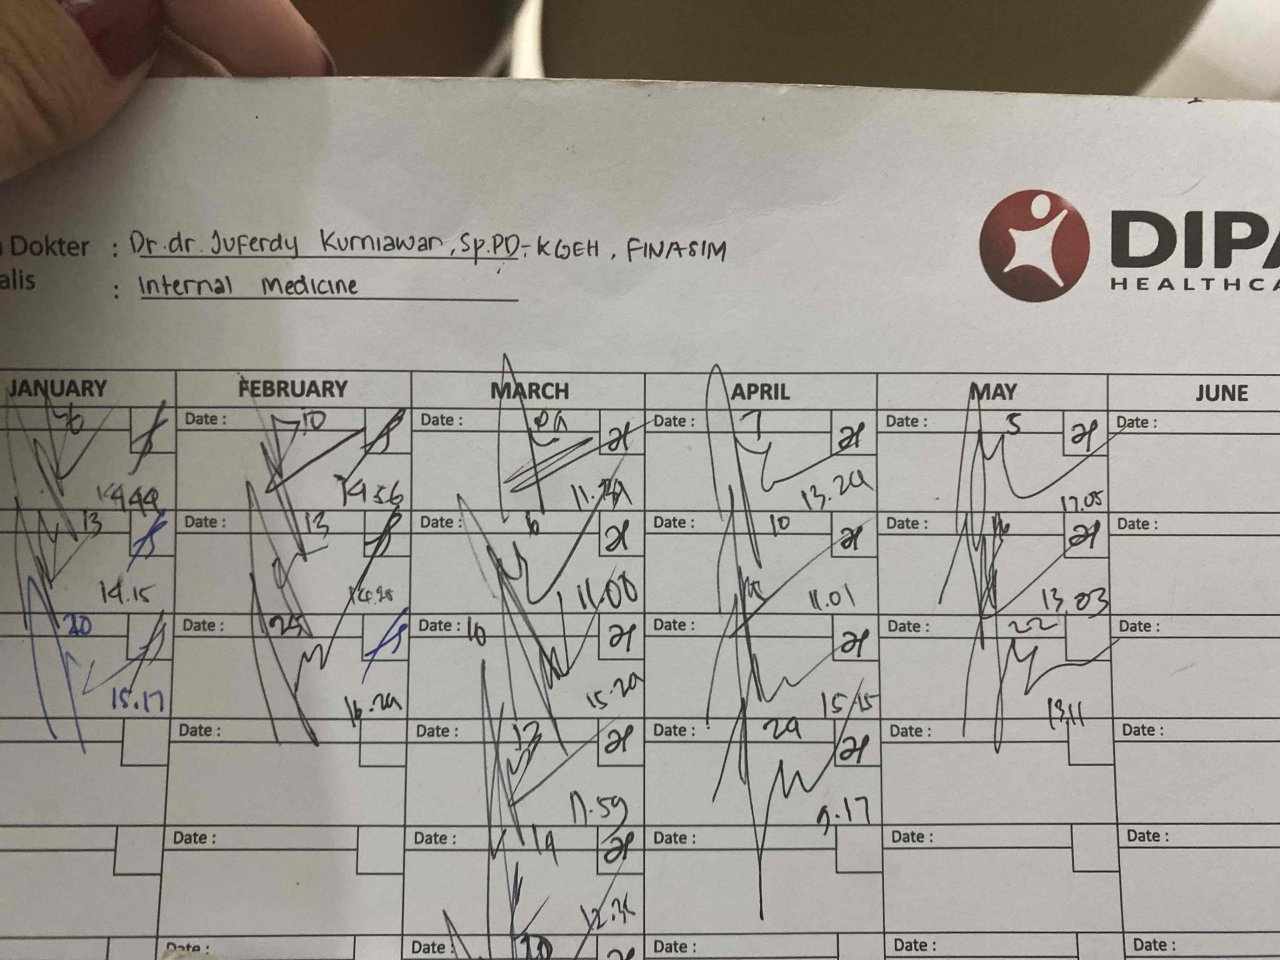 Dokter : Dr.dr. Juferdy Kurniawan, Sp.PD-KGEH, FINASIM
alis : Internal Medicine
DIPA
HEALTHCA
JANUARY FEBRUARY MARCH APRIL MAY JUNE
6 Date : 10 Date : Date : 7 Date : 5 Date :
14.44 14.56 13.29 17.05
13 Date : 13 Date : 6 Date : 10 Date : Date :
14.15 11.08 11.01 13.03
20 Date : 25 Date : 10 Date : Date : 22 Date :
15.17 16.29 15.29 15.15 13.11
Date : Date : 13 Date : 29 Date : Date :
11.59 9.17
Date : Date : 19 Date : Date : Date :
Date : Date : 20 Date : Date : Date :